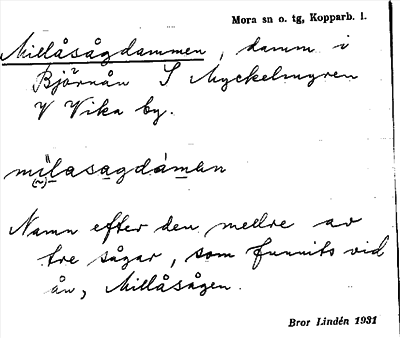 Mora sn o. tg, Kopparb. l.
Millåsågdammen, damm i
Björnån S Myckelmyren
V Vika by.
milasagdáman
Namn efter den mellre av
tre sågar, som funnits vid
ån, Millåsågen.
Bror Lindén 1931